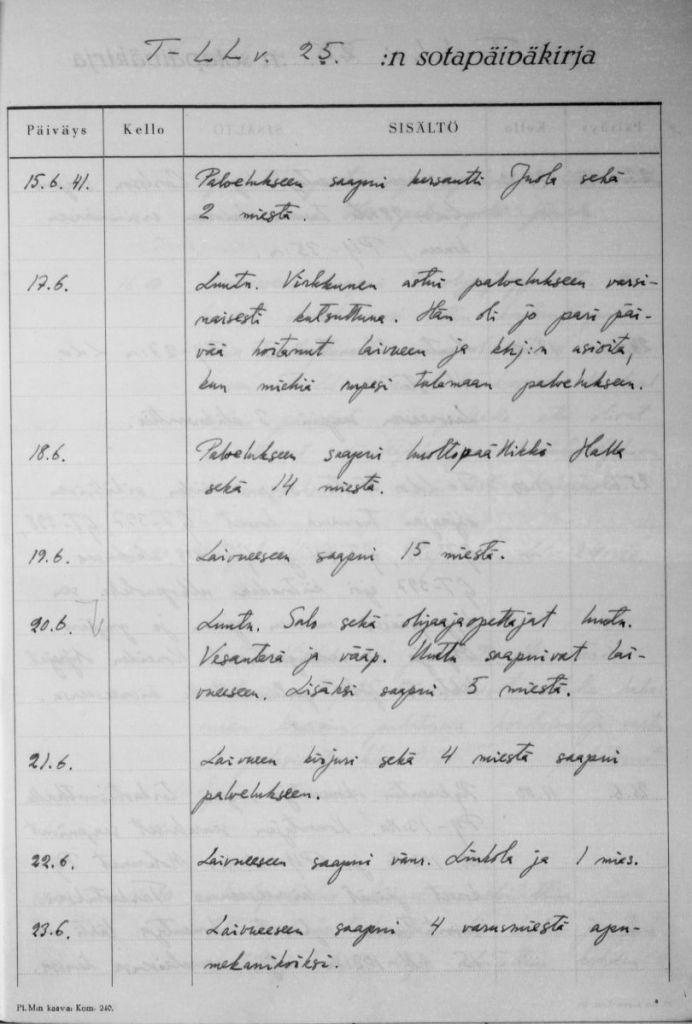 T-LLv. 25. :n sotapäiväkirja
Päiväys Kello SISÄLTÖ
15.6.41. Palvelukseen saapui kersantti Juola sekä
2 miestä.
17.6. Luutn. Virkkunen astui palvelukseen varsi-
naisesti kutsuttuna. Hän oli jo pari päi-
vää hoitanut laivueen ja khj:n asioita,
kun miehiä rupesi tulemaan palvelukseen.
18.6. Palvelukseen saapui huoltopäällikkö Halla
sekä 14 miestä.
19.6. Laivueeseen saapui 15 miestä.
20.6. Luutn. Salo sekä ohjaajaopettajat luutn.
Vesanterä ja vääp. saapuivat lai-
vueeseen. Lisäksi saapui 5 miestä.
21.6. Laivueen kirjuri sekä 4 miestä saapui
palvelukseen.
22.6. Laivueeseen saapui vänr. Linkola ja 1 mies.
23.6. Laivueeseen saapui 4 varusmiestä apu-
mekanikoiksi.
Pl. M:n kaava: Kom. 240.